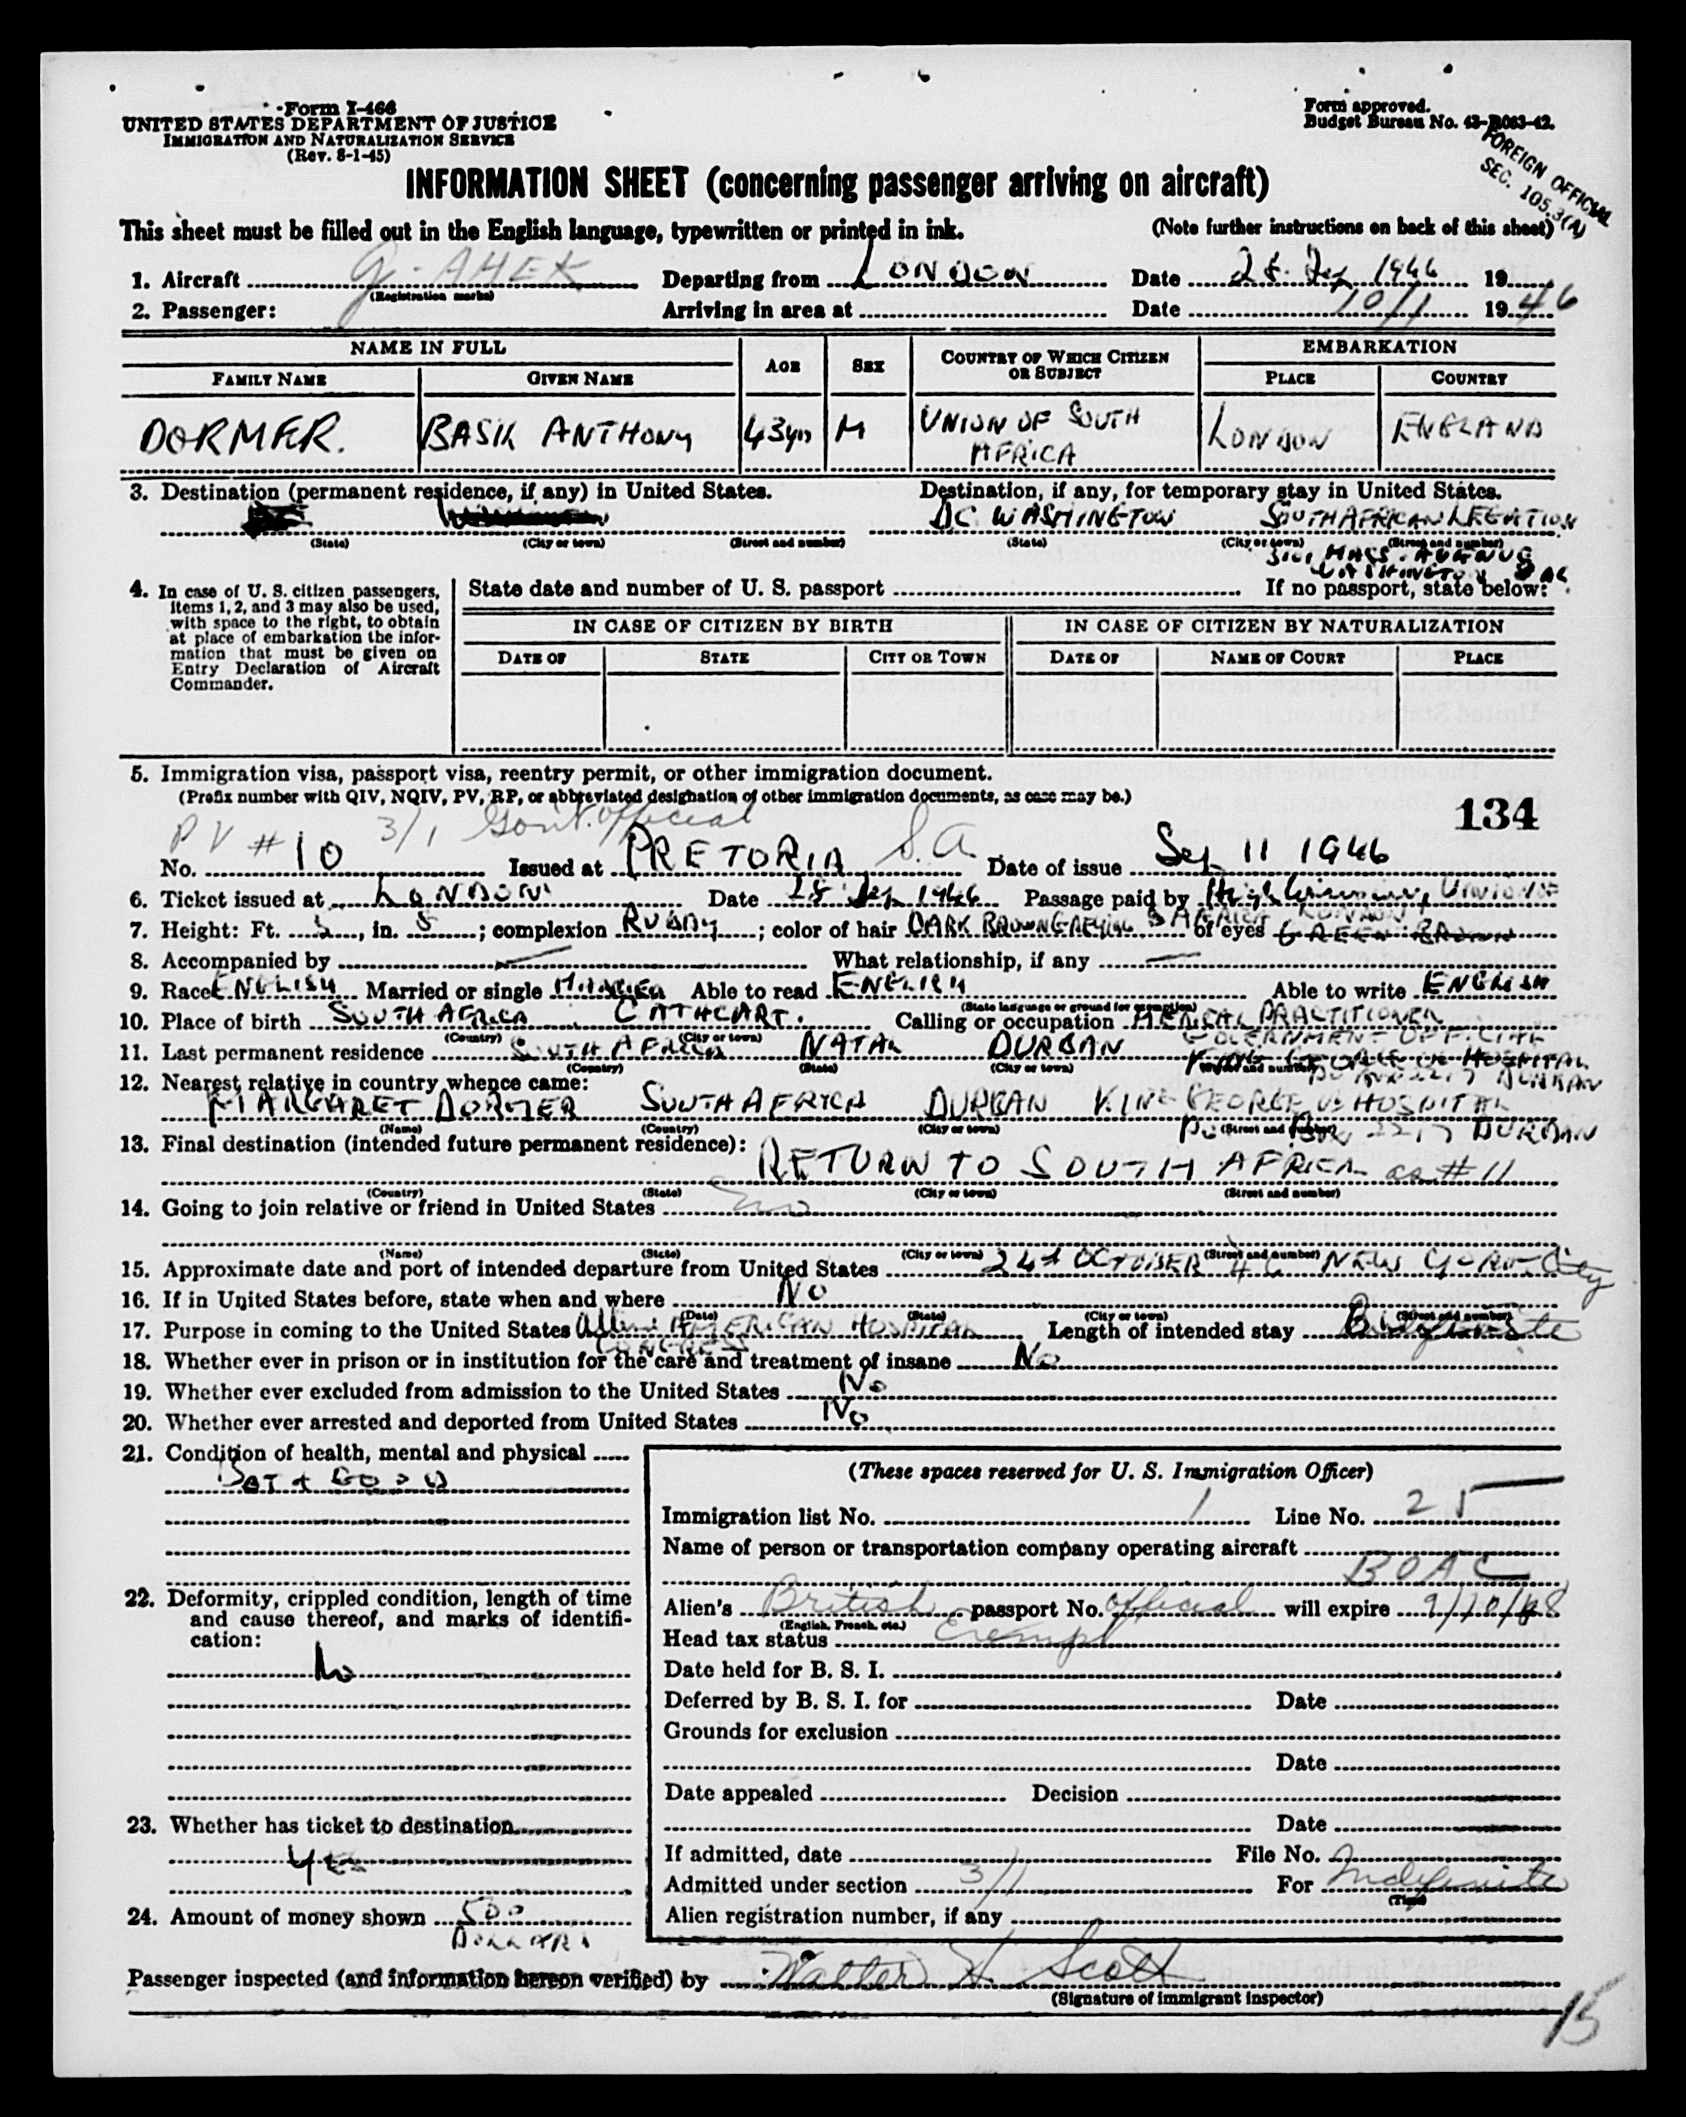 Form I-466
UNITED STATES DEPARTMENT OF JUSTICE
IMMIGRATION AND NATURALIZATION SERVICE
(Rev. 8-1-45)
Form approved.
Budget Bureau No. 43-R083-42.
FOREIGN OFFICIAL
SEC. 105.3(A)
INFORMATION SHEET (concerning passenger arriving on aircraft)
This sheet must be filled out in the English language, typewritten or printed in ink. (Note further instructions on back of this sheet)
1. Aircraft G-AHEK Departing from LONDON Date 28 Sep 1946 19
(Registration marks)
2. Passenger: Arriving in area at Date 10/1 1946
NAME IN FULL AGE SEX COUNTRY OF WHICH CITIZEN OR SUBJECT EMBARKATION
FAMILY NAME GIVEN NAME PLACE COUNTRY
DORMER. BASIL ANTHONY 43yrs M UNION OF SOUTH AFRICA LONDON ENGLAND
3. Destination (permanent residence, if any) in United States. Destination, if any, for temporary stay in United States.
DC WASHINGTON SOUTH AFRICAN LEGATION
(State) (City or town) (Street and number) (State) (City or town) (Street and number)
3101 MASS. AVENUE
WASHINGTON DC
4. In case of U. S. citizen passengers, items 1, 2, and 3 may also be used, with space to the right, to obtain at place of embarkation the information that must be given on Entry Declaration of Aircraft Commander.
State date and number of U. S. passport If no passport, state below:
IN CASE OF CITIZEN BY BIRTH IN CASE OF CITIZEN BY NATURALIZATION
DATE OF STATE CITY OR TOWN DATE OF NAME OF COURT PLACE
5. Immigration visa, passport visa, reentry permit, or other immigration document.
(Prefix number with QIV, NQIV, PV, RP, or abbreviated designation of other immigration documents, as case may be.)
134
PV # 3/1 Gov't. official
No. 10 Issued at PRETORIA S.A. Date of issue Sep 11 1946
6. Ticket issued at LONDON Date 28 Sep 1946 Passage paid by High Commissioner, UNION OF
S AFRICA LONDON
7. Height: Ft. 5, in. 8; complexion RUDDY; color of hair DARK BROWN GREYING of eyes GREEN BROWN
8. Accompanied by — What relationship, if any —
9. Race ENGLISH Married or single MARRIED Able to read ENGLISH Able to write ENGLISH
(State language or ground for exemption)
10. Place of birth SOUTH AFRICA CATHCART. Calling or occupation MEDICAL PRACTITIONER
(Country) (City or town) GOVERNMENT OFFICIAL
11. Last permanent residence SOUTH AFRICA NATAL DURBAN KING GEORGE V HOSPITAL
(Country) (State) (City or town) (Street and number)
DURBAN
12. Nearest relative in country whence came:
MARGARET DORMER SOUTH AFRICA DURBAN KING GEORGE V HOSPITAL
(Name) (Country) (City or town) (Street and number)
PO Box DURBAN
13. Final destination (intended future permanent residence):
RETURN TO SOUTH AFRICA as # 11
(Country) (State) (City or town) (Street and number)
14. Going to join relative or friend in United States no
(Name) (State) (City or town) (Street and number)
15. Approximate date and port of intended departure from United States 24th OCTOBER 46 NEW YORK City
16. If in United States before, state when and where No
(Date) (State) (City or town) (Street and number)
17. Purpose in coming to the United States AMERICAN HOSPITAL Length of intended stay
CONGRESS
18. Whether ever in prison or in institution for the care and treatment of insane No
19. Whether ever excluded from admission to the United States No
20. Whether ever arrested and deported from United States No
21. Condition of health, mental and physical
BOTH GOOD
22. Deformity, crippled condition, length of time and cause thereof, and marks of identification:
No
23. Whether has ticket to destination
Yes
24. Amount of money shown 500
DOLLARS
(These spaces reserved for U. S. Immigration Officer)
Immigration list No. 1 Line No. 25
Name of person or transportation company operating aircraft
BOAC
Alien's British passport No. official will expire 9/10/48
(English, French, etc.)
Head tax status Exempt
Date held for B. S. I.
Deferred by B. S. I. for Date
Grounds for exclusion
Date
Date appealed Decision
Date
If admitted, date File No.
Admitted under section 3/1 For Indefinite
(Time)
Alien registration number, if any
Passenger inspected (and information hereon verified) by Walter H. Scott
(Signature of immigrant inspector)
15